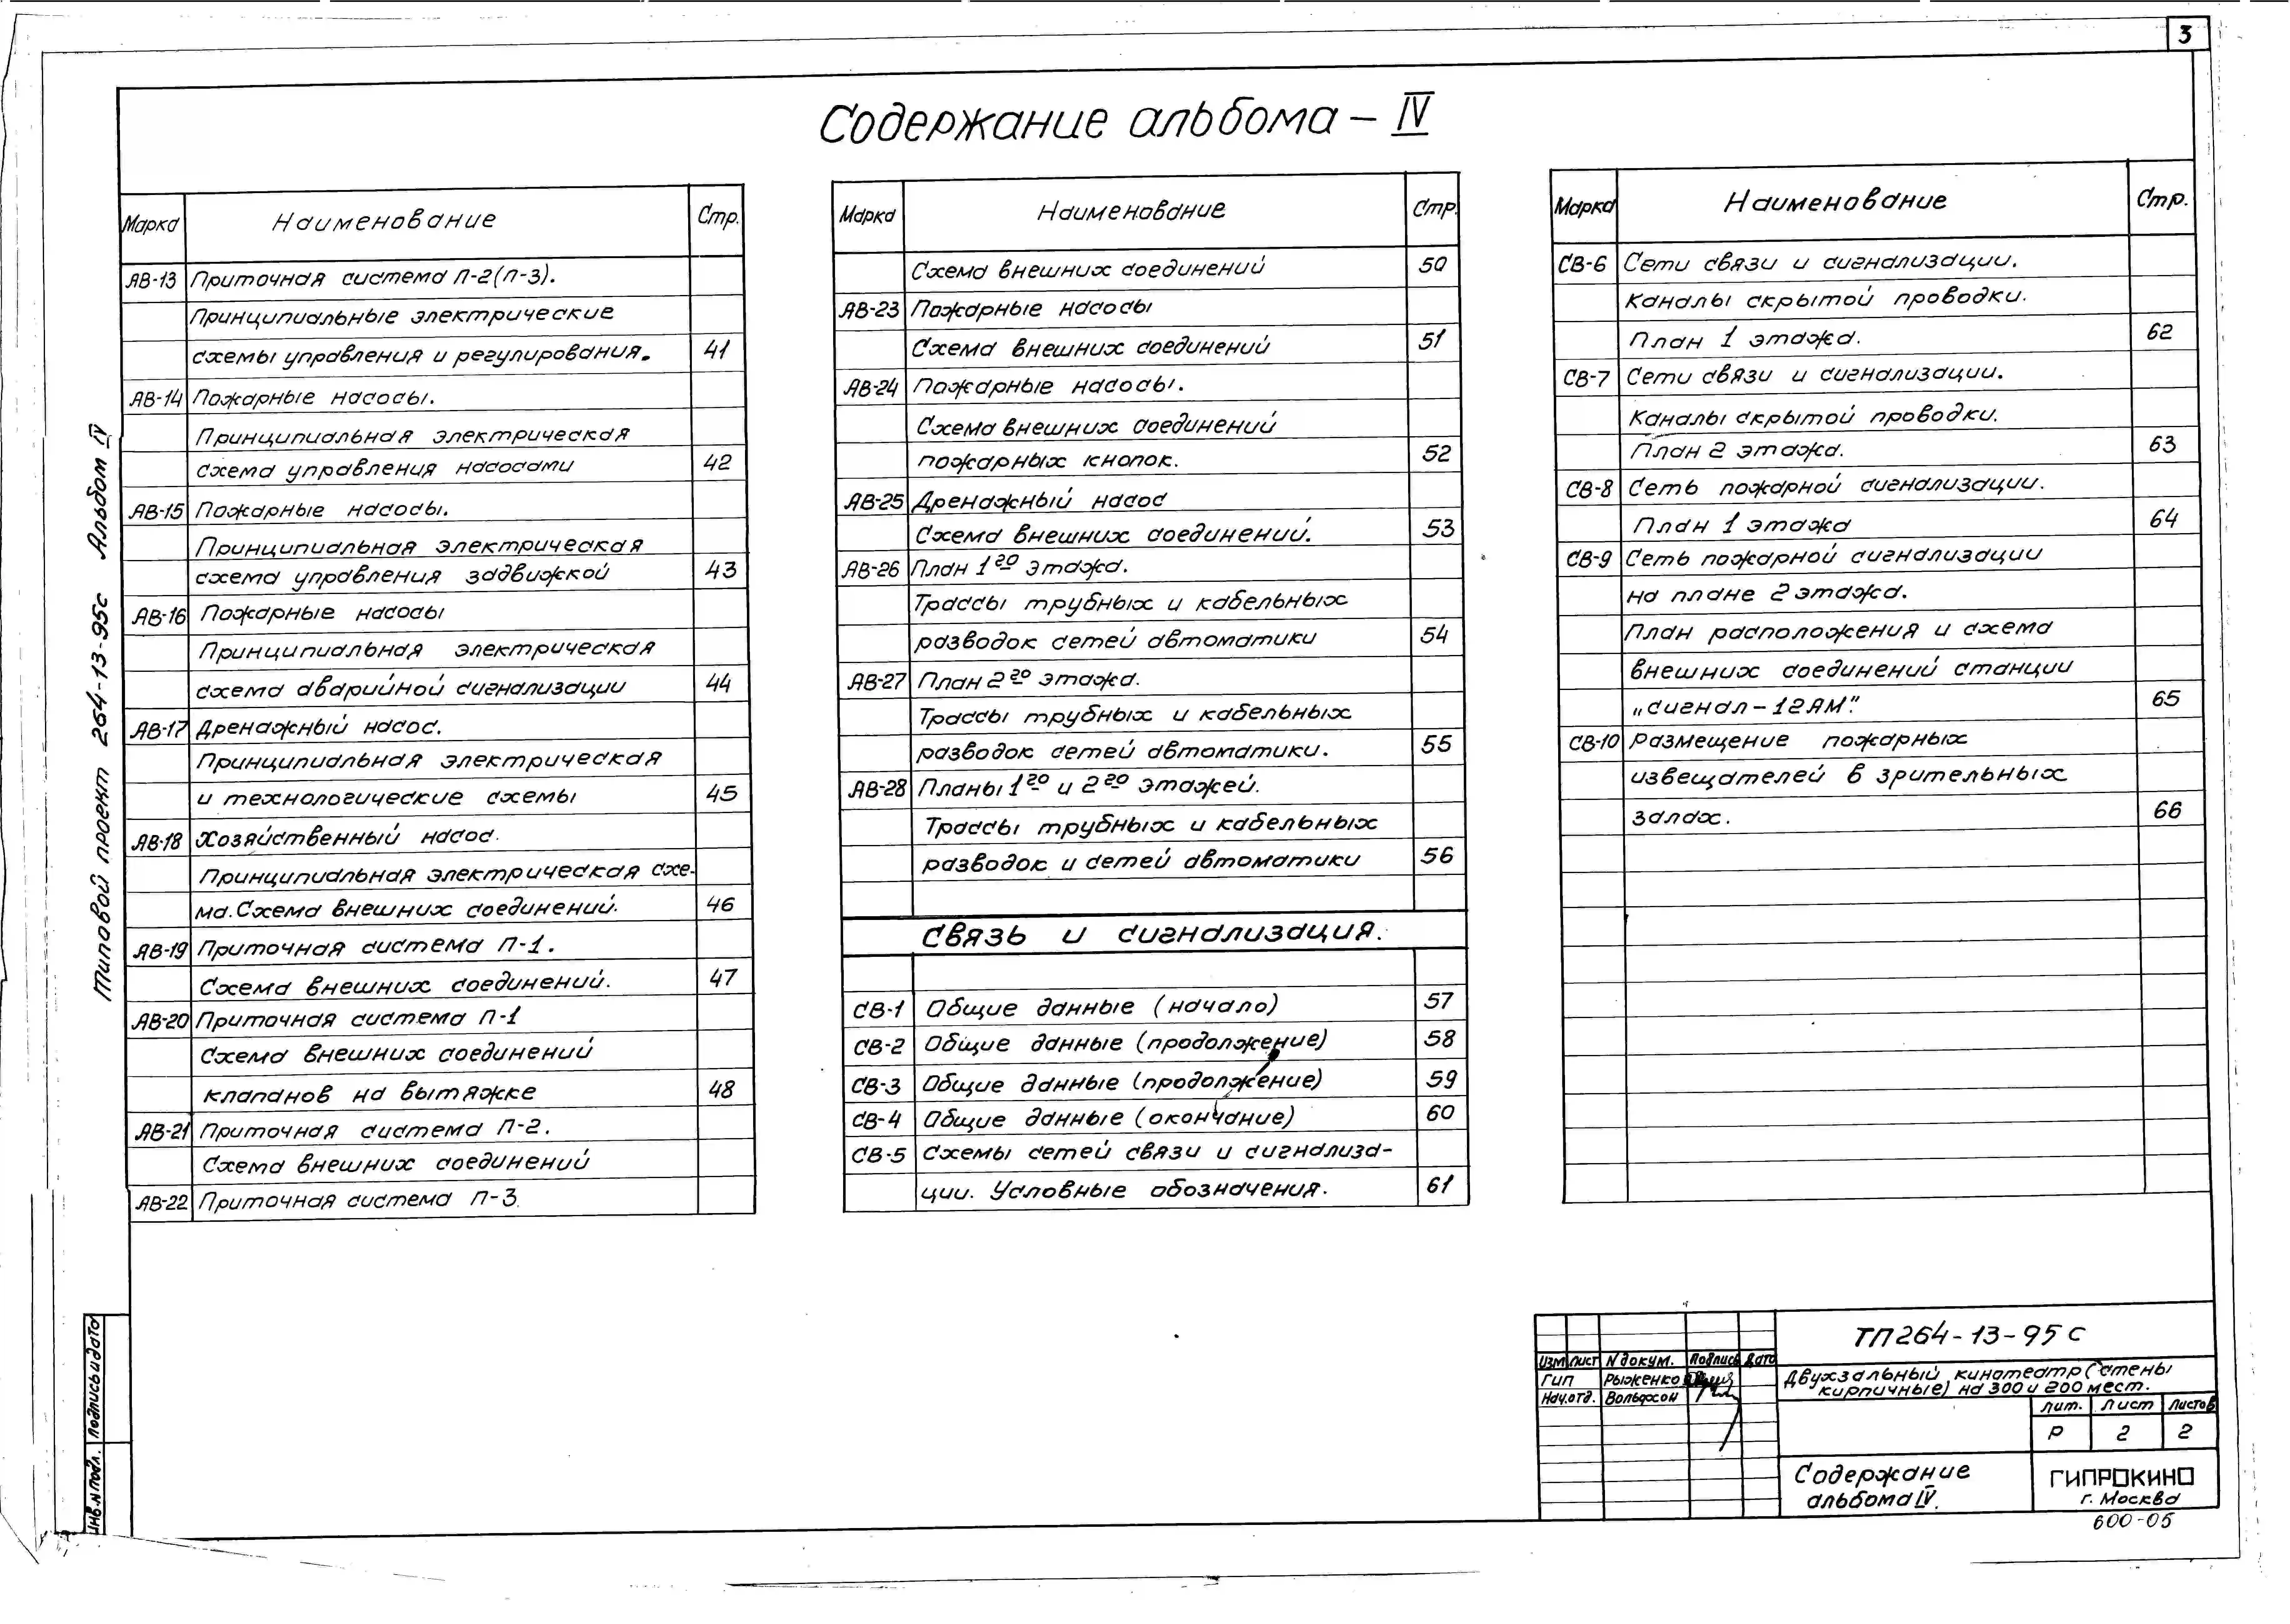 3
Содержание альбома - IV
Типовой проект 264-13-95с Альбом IV
Марка Наименование Стр.
АВ-13 Приточная система П-2(П-3).
Принципиальные электрические
схемы управления и регулирования. 41
АВ-14 Пожарные насосы.
Принципиальная электрическая
схема управления насосами 42
АВ-15 Пожарные насосы.
Принципиальная электрическая
схема управления задвижкой 43
АВ-16 Пожарные насосы
Принципиальная электрическая
схема аварийной сигнализации 44
АВ-17 Дренажный насос.
Принципиальная электрическая
и технологические схемы 45
АВ-18 Хозяйственный насос.
Принципиальная электрическая схе-
ма. Схема внешних соединений. 46
АВ-19 Приточная система П-1.
Схема внешних соединений. 47
АВ-20 Приточная система П-1
Схема внешних соединений
клапанов на вытяжке 48
АВ-21 Приточная система П-2.
Схема внешних соединений
АВ-22 Приточная система П-3.
Марка Наименование Стр.
Схема внешних соединений 50
АВ-23 Пожарные насосы
Схема внешних соединений 51
АВ-24 Пожарные насосы.
Схема внешних соединений
пожарных кнопок. 52
АВ-25 Дренажный насос
Схема внешних соединений. 53
АВ-26 План 1го этажа.
Трассы трубных и кабельных
разводок сетей автоматики 54
АВ-27 План 2го этажа.
Трассы трубных и кабельных
разводок сетей автоматики. 55
АВ-28 Планы 1го и 2го этажей.
Трассы трубных и кабельных
разводок и сетей автоматики 56
Связь и сигнализация.
СВ-1 Общие данные (начало) 57
СВ-2 Общие данные (продолжение) 58
СВ-3 Общие данные (продолжение) 59
СВ-4 Общие данные (окончание) 60
СВ-5 Схемы сетей связи и сигнализа-
ции. Условные обозначения. 61
Марка Наименование Стр.
СВ-6 Сети связи и сигнализации.
Каналы скрытой проводки.
План 1 этажа. 62
СВ-7 Сети связи и сигнализации.
Каналы скрытой проводки.
План 2 этажа. 63
СВ-8 Сеть пожарной сигнализации.
План 1 этажа 64
СВ-9 Сеть пожарной сигнализации
на плане 2 этажа.
План расположения и схема
внешних соединений станции
„Сигнал-12АМ". 65
СВ-10 Размещение пожарных
извещателей в зрительных
залах. 66
Инв.N подл. Подпись и дата
ТП264-13-95с
Изм Лист N докум. Подпись Дата
Гип Рыженко
Нач.отд. Вольфсон
Двухзальный кинотеатр (стены
кирпичные) на 300 и 200 мест.
Лит. Лист Листов
Р 2 2
Содержание
альбома IV.
ГИПРОКИНО
г. Москва
600-05